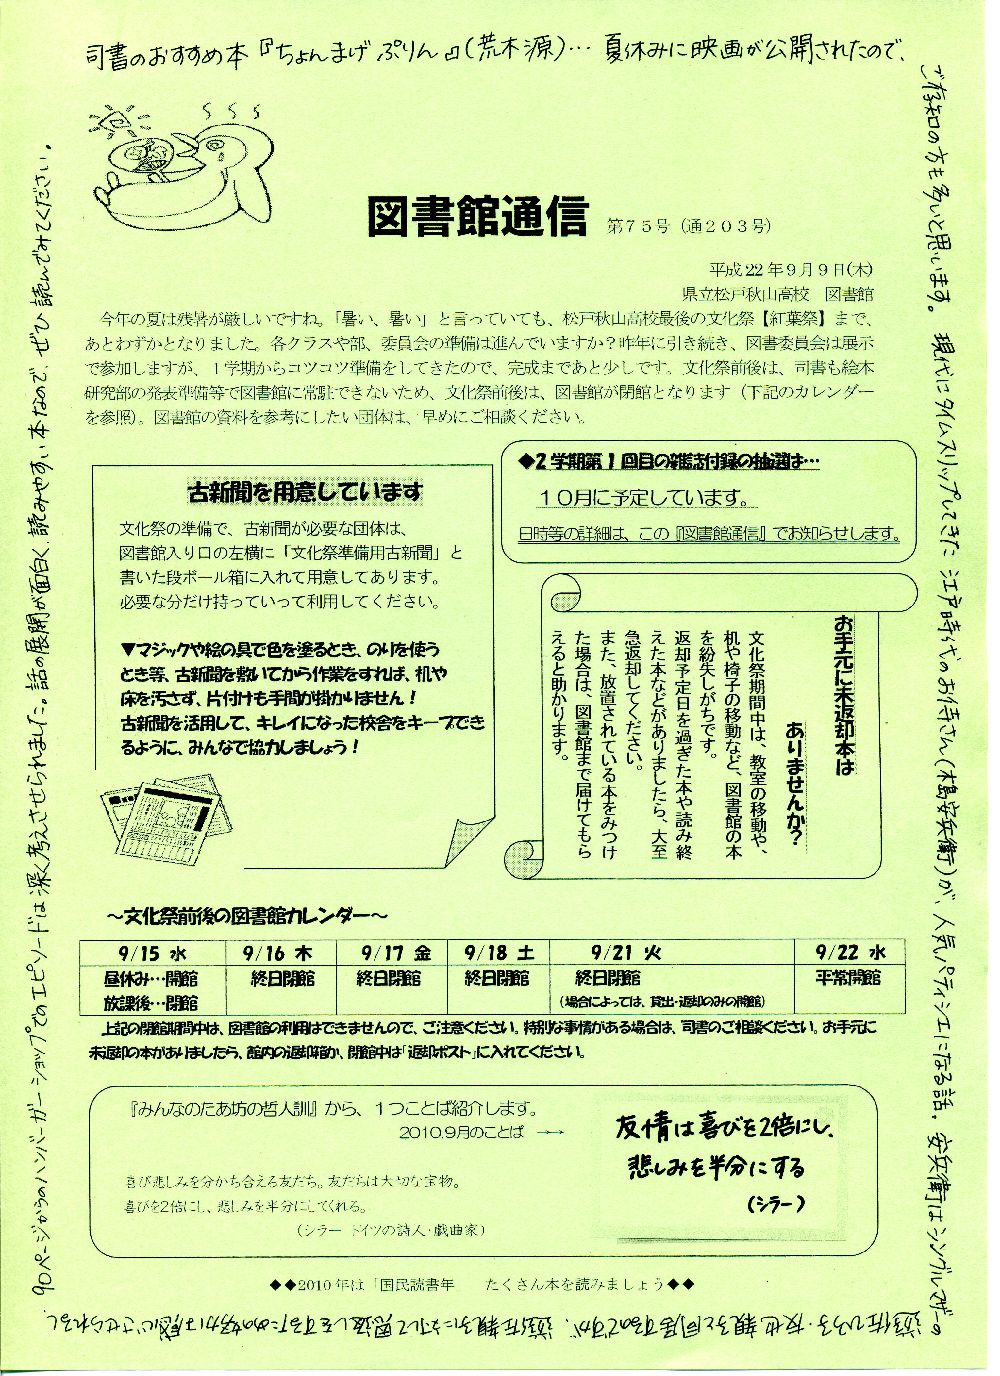 司書のおすすめ本『ちょんまげぷりん』(荒木源)… 夏休みに映画が公開されたので、
ご存知の方も多いと思います。現代にタイムスリップしてきた江戸時代のお侍さん(木島安兵衛)が、人気パティシエになる話。安兵衛はシングルマザーの
遊佐ひろ子・友也親子と同居するのですが、遊佐親子に対して恩返しをするための努力は感心させられるし、
90ページからのハンバーガーショップでのエピソードは深く考えさせられました。話の展開が面白く、読みやすい本なので、ぜひ読んでみてください。
図書館通信 第75号(通203号)
平成22年9月9日(木)
県立松戸秋山高校 図書館
今年の夏は残暑が厳しいですね。「暑い、暑い」と言っていても、松戸秋山高校最後の文化祭【紅葉祭】まで、
あとわずかとなりました。各クラスや部、委員会の準備は進んでいますか?昨年に引き続き、図書委員会は展示
で参加しますが、1学期からコツコツ準備をしてきたので、完成まであと少しです。文化祭前後は、司書も絵本
研究部の発表準備等で図書館に常駐できないため、文化祭前後は、図書館が閉館となります(下記のカレンダー
を参照)。図書館の資料を参考にしたい団体は、早めにご相談ください。
古新聞を用意しています
文化祭の準備で、古新聞が必要な団体は、
図書館入り口の左横に「文化祭準備用古新聞」と
書いた段ボール箱に入れて用意してあります。
必要な分だけ持っていって利用してください。
▼マジックや絵の具で色を塗るとき、のりを使う
とき等、古新聞を敷いてから作業をすれば、机や
床を汚さず、片付けも手間が掛かりません!
古新聞を活用して、キレイになった校舎をキープでき
るように、みんなで協力しましょう!
◆2学期第1回目の雑誌付録の抽選は…
10月に予定しています。
日時等の詳細は、この『図書館通信』でお知らせします。
お手元に未返却本は
ありませんか?
文化祭期間中は、教室の移動や、
机や椅子の移動など、図書館の本
を紛失しがちです。
返却予定日を過ぎた本や読み終
えた本などがありましたら、大至
急返却してください。
また、放置されている本をみつけ
た場合は、図書館まで届けてもら
えると助かります。
～文化祭前後の図書館カレンダー～
9/15 水 9/16 木 9/17 金 9/18 土 9/21 火 9/22 水
昼休み…開館 終日閉館 終日閉館 終日閉館 終日閉館 平常開館
放課後…閉館 (場合によっては、貸出・返却のみの開館)
上記の閉館期間中は、図書館の利用はできませんので、ご注意ください。特別な事情がある場合は、司書のご相談ください。お手元に
未返却の本がありましたら、館内の返却箱か、閉館中は「返却ポスト」に入れてください。
『みんなのたあ坊の哲人訓』から、1つことば紹介します。
2010.9月のことば →→
喜び悲しみを分かち合える友だち。友だちは大切な宝物。
喜びを2倍にし、悲しみを半分にしてくれる。
(シラー ドイツの詩人・戯曲家)
友情は喜びを2倍にし、
悲しみを半分にする
(シラー)
◆◆2010年は「国民読書年 たくさん本を読みましょう◆◆